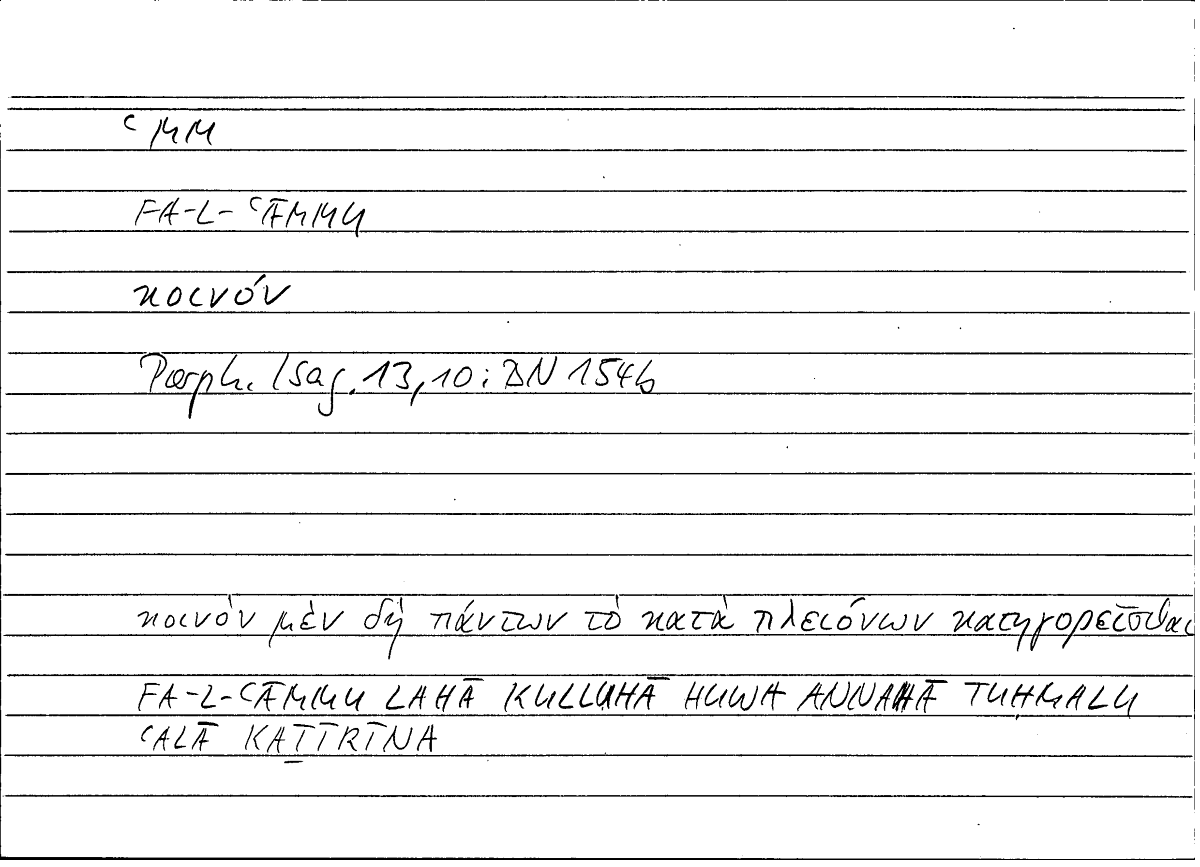 ʿMM
FA-L-ʿĀMMU
κοινόν
Porph. Isag. 13,10: DN 154b
κοινὸν μὲν δὴ πάντων τὸ κατὰ πλειόνων κατηγορεῖσθαι
FA-L-ʿĀMMU LAHĀ KULLUHĀ HUWA ANNAHĀ TUḤMALU
ʿALĀ KAṮĪRĪNA